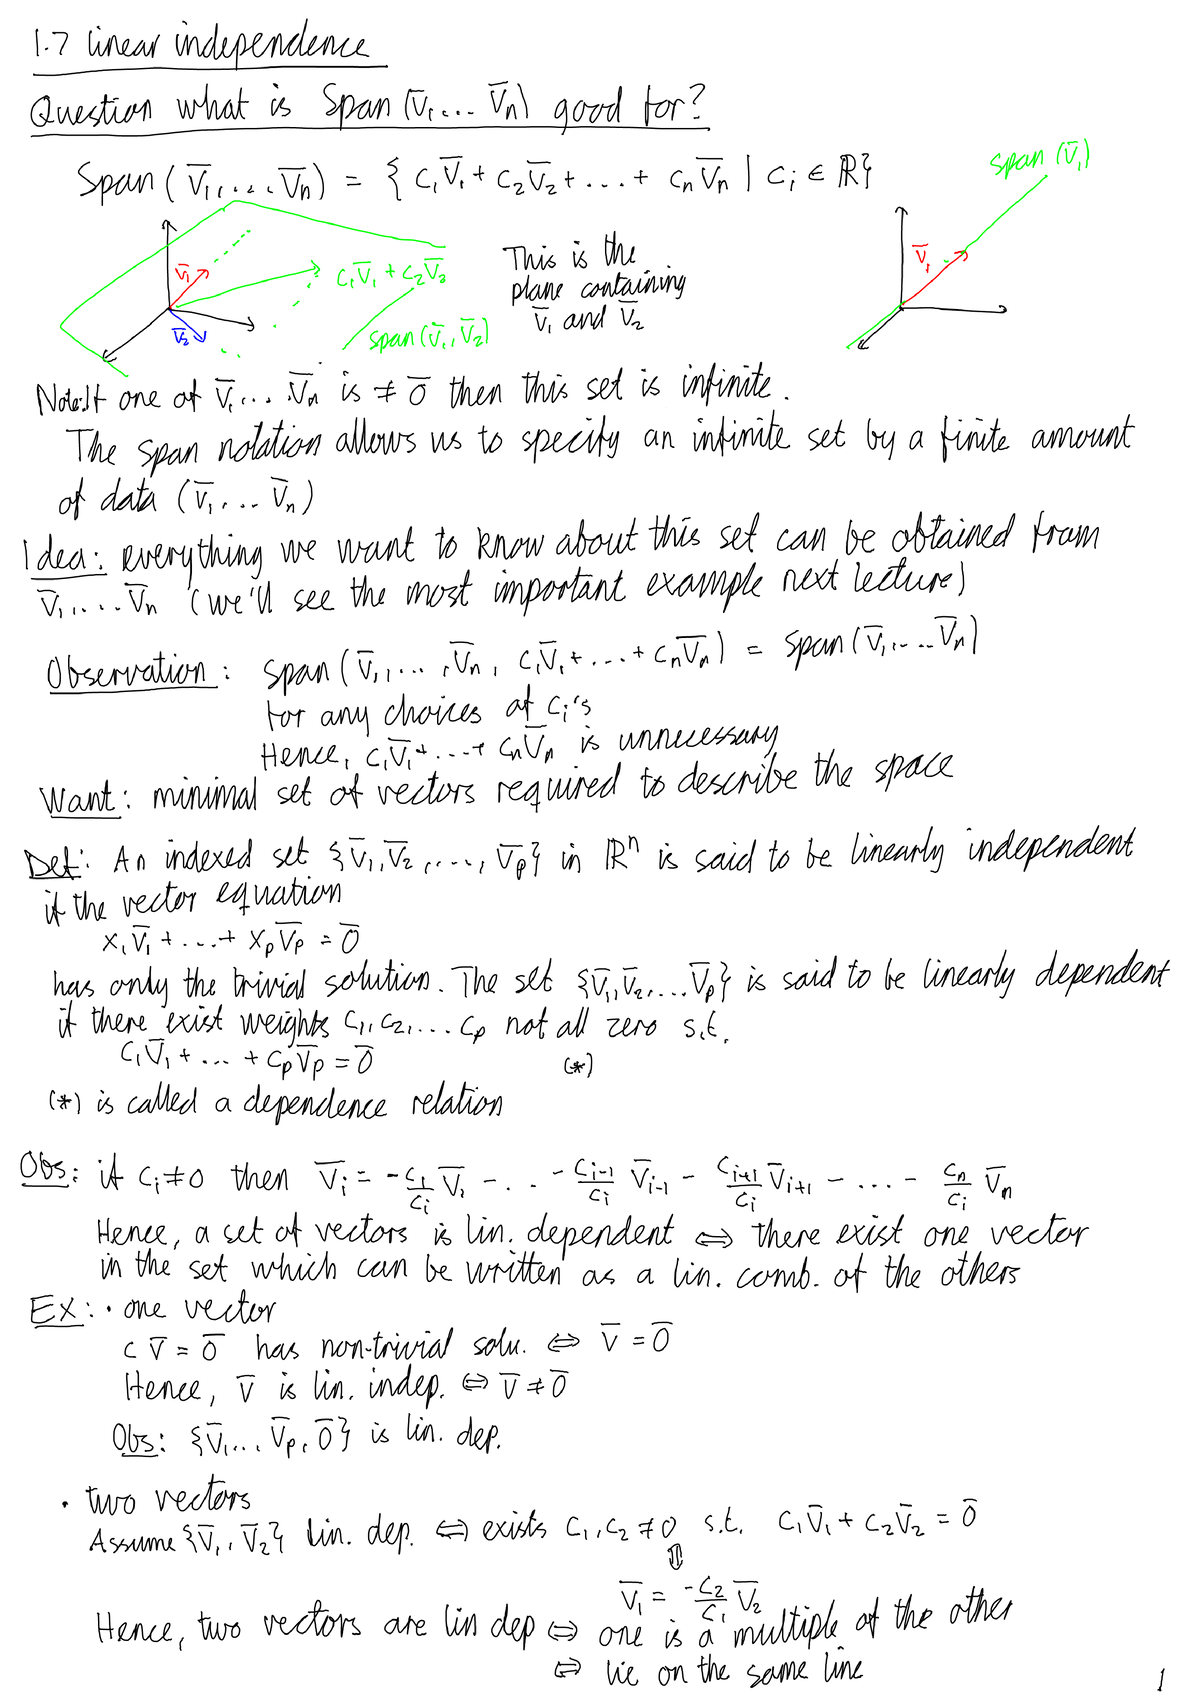 1.7 linear independence
Question what is Span (v̄₁... v̄ₙ) good for?
Span (v̄₁,...v̄ₙ) = {c₁v̄₁ + c₂v̄₂ + ... + cₙv̄ₙ | cᵢ ∈ ℝ}
span (v̄₁)
v̄₁
c₁v̄₁ + c₂v̄₂
v̄₂
span (v̄₁, v̄₂)
This is the
plane containing
v̄₁ and v̄₂
v̄₁
Note: If one of v̄₁,... v̄ₙ is ≠ 0̄ then this set is infinite.
The span notation allows us to specify an infinite set by a finite amount
of data (v̄₁,... v̄ₙ)
Idea: everything we want to know about this set can be obtained from
v̄₁,... v̄ₙ (we'll see the most important example next lecture)
Observation: span (v̄₁,... ,v̄ₙ, c₁v̄₁+...+cₙv̄ₙ) = span (v̄₁,...v̄ₙ)
for any choices of cᵢ's
Hence, c₁v̄₁+...+ cₙv̄ₙ is unnecessary
Want: minimal set of vectors required to describe the space
Def: An indexed set {v̄₁,v̄₂,..., v̄ₚ} in ℝⁿ is said to be linearly independent
if the vector equation
x₁v̄₁ + ...+ xₚv̄ₚ = 0̄
has only the trivial solution. The set {v̄₁,v̄₂,...v̄ₚ} is said to be linearly dependent
if there exist weights c₁,c₂,... cₚ not all zero s.t.
c₁v̄₁ + ... + cₚv̄ₚ = 0̄ (*)
(*) is called a dependence relation
Obs: if cᵢ≠0 then v̄ᵢ = -c₁/cᵢ v̄₁ - ... - cᵢ₋₁/cᵢ v̄ᵢ₋₁ - cᵢ₊₁/cᵢ v̄ᵢ₊₁ - ... - cₙ/cᵢ v̄ₙ
Hence, a set of vectors is lin. dependent ⇔ there exist one vector
in the set which can be written as a lin. comb. of the others
EX: • one vector
c v̄ = 0̄ has non-trivial solu. ⇔ v̄ = 0̄
Hence, v̄ is lin. indep. ⇔ v̄ ≠ 0̄
Obs: {v̄₁,... v̄ₚ, 0̄} is lin. dep.
• two vectors
Assume {v̄₁, v̄₂} lin. dep. ⇔ exists c₁,c₂ ≠ 0 s.t. c₁v̄₁ + c₂v̄₂ = 0̄
⇕
v̄₁ = -c₂/c₁ v̄₂
Hence, two vectors are lin dep ⇔ one is a multiple of the other
⇔ lie on the same line
1